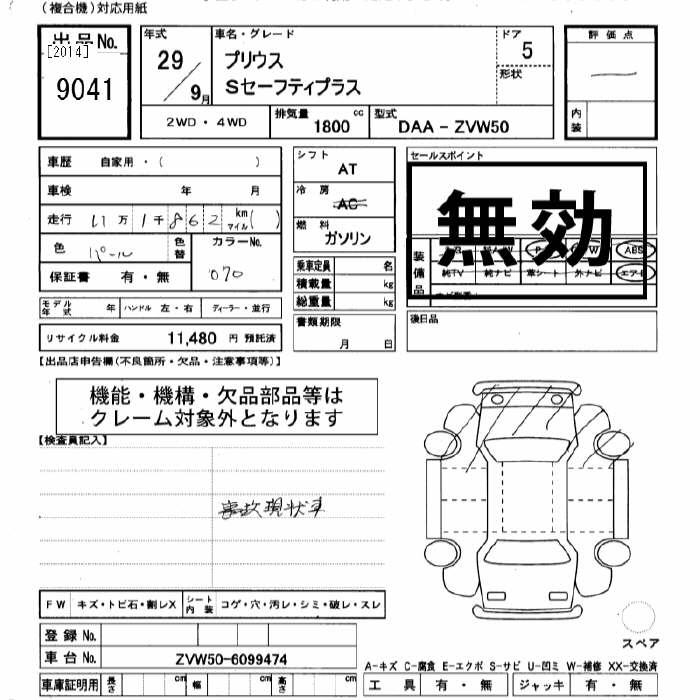 (複合機)対応用紙
出品No.
[2014]
9041
年式
29/9月
車名・グレード
プリウス
Sセーフティプラス
ドア
5
形状
評価点
内装
2WD・4WD
排気量
1800
cc
型式
DAA-ZVW50
車歴 自家用・( )
車検 年 月
走行 11万1千862 km マイル( )
色 パール 色替 カラーNo. 070
保証書 有・無
モデル年式 年 ハンドル 左・右 ディーラー・並行
リサイクル料金 11,480 円 預託済
シフト
AT
冷房
AC
燃料
ガソリン
乗車定員 名
積載量 kg
総重量 kg
書類期限
月 日
セールスポイント
無効
装備品
ABS
純TV 純ナビ 革シート 外ナビ エアB
後日品
【出品店申告欄(不良箇所・欠品・注意事項等)】
機能・機構・欠品部品等は
クレーム対象外となります
【検査員記入】
事故現状車
FW キズ・トビ石・割レX シート内装 コゲ・穴・汚レ・シミ・破レ・スレ
登録No.
車台No. ZVW50-6099474
車庫証明用 長さ cm 幅 cm 高さ cm
スペア
A-キズ C-腐食 E-エクボ S-サビ U-凹ミ W-補修 XX-交換済
工具 有・無 ジャッキ 有・無